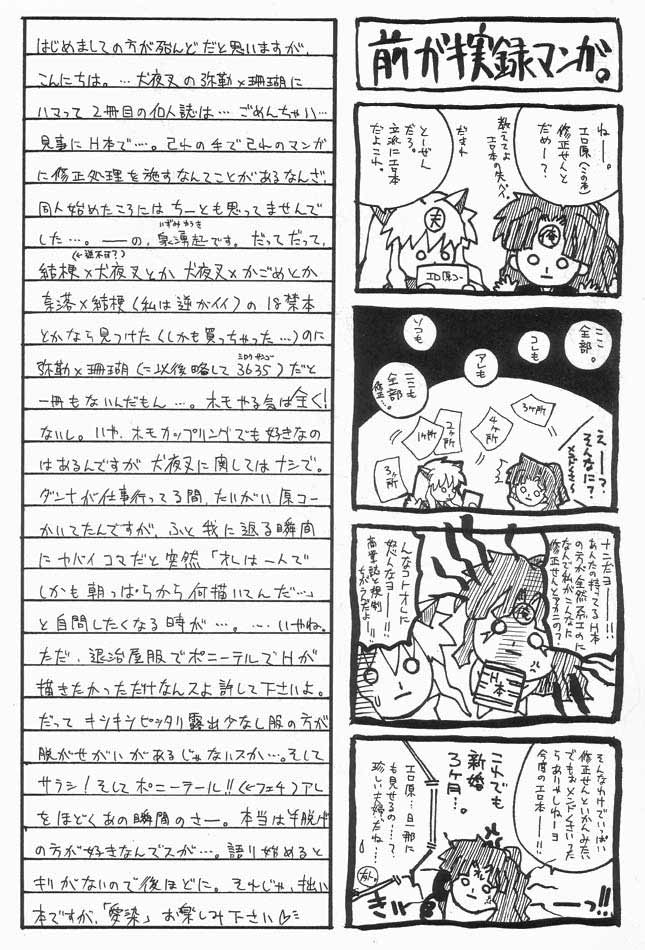 前がき実録マンガ。
ねー。
エロ原(この本)
修正せんと
だめー?
教えてよ
エロ本の先パイ。
だまれ
とーぜん
だろ。
立派にエロ本
だよコレ。
夫
俺
エロ原コー
ここ
全部。
コレも
アレも
ソコも
ここも
全部…
修正…
3ヶ所
4ヶ所
2ヶ所
1ヶ所
3ヶ所
えーっ?
そんなに?
メンドくさー
ナニだヨ
あんたの持ってるH本
の方が全然エロエロなのに
なんで私がこんなに
修正せんとアカンの?
んなコトオレに
怒んなヨー!!
商業誌と規制
ちがうんだよー!!
俺
H本
そんなわけでいっぱい
修正せんといかんみたい
でもおメンドくさいったら
ありゃしねーヨ
今度のエロ本ー!!
これでも
新婚
3ヶ月…。
エロ原…旦那に
も見せるの……?
珍しい夫婦だね…
友人。
きぃ
ーっ!!
はじめましての方が殆んどだと思いますが、
こんにちは。…犬夜叉の弥勒×珊瑚に
ハマって2冊目の同人誌は…ごめんちゃい…
見事にH本で…。己れの手で己れのマンガ
に修正処理を施すなんてことがあるなんざ、
同人始めたころにはちーとも思ってませんで
した…。ーの、泉湧起です。だってだって、
いずみゆうき
(←逆不可?)
結梗×犬夜叉とか 犬夜叉×かごめとか
奈落×結梗(私は逆がイイ)の18禁本
とかなら見つけた(しかも買っちゃった…)のに
弥勒×珊瑚(に以後略して3635)だと
ミロクサンゴ
一冊もないんだもん…。ホモやる気は全く!
ないし。いや、ホモカップリングでも好きなの
はあるんですが 犬夜叉に関してはナシで。
ダンナが仕事行ってる間、たいがい原コー
かいてたんですが、ふと我に返る瞬間
にヤバイコマだと突然「オレは一人で
しかも朝っぱらから何描いてんだ…」
と自問したくなる時が…。…いやね。
ただ、退治屋服でポニーテルでHが
描きたかっただけなんスよ許して下さいよ。
だって キシキシピッタリ露出少なし服の方が
脱がせがいがあるじゃないスか…。そして
サラシ!そして ポニーテール!!(←フェチ)アレ
をほどくあの瞬間のさー。本当は半脱げ
の方が好きなんでスが…。語り始めると
キリがないので後ほどに。それじゃ、拙い
本ですが、「愛染」お楽しみ下さい